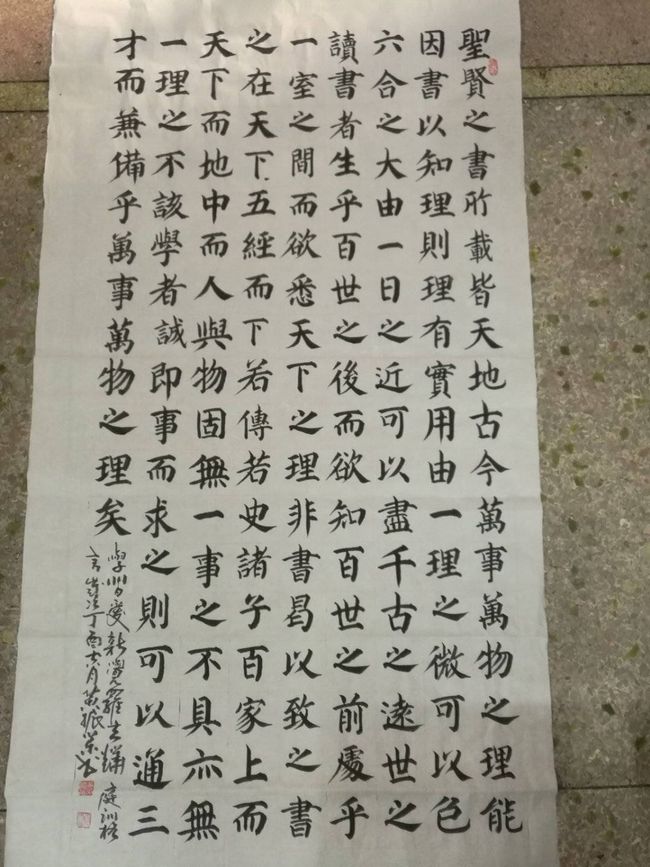 聖賢之書所載皆天地古今萬事萬物之理能
因書以知理則理有實用由一理之微可以色
六合之大由一日之近可以盡千古之遠世之
讀書者生乎百世之後而欲知百世之前處乎
一室之間而欲悉天下之理非書曷以致之書
之在天下五經而下若傳若史諸子百家上而
天下而地中而人與物固無一事之不具亦無
一理之不該學者誠即事而求之則可以通三
才而兼備乎萬事萬物之理矣
學習愛新覺羅玄燁 庭訓格
言 丁酉 月黄振荣